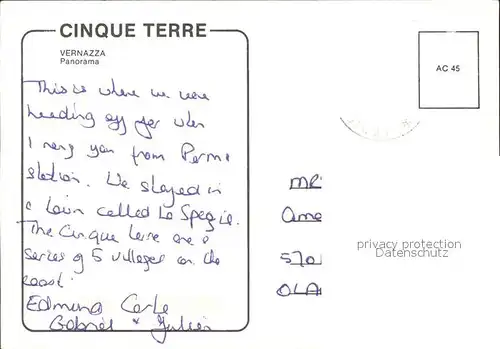 CINQUE TERRE
VERNAZZA
Panorama
AC 45
This is where we were
heading off for when
I rang you from Parma
station. We stayed in
a town called La Spezia.
The Cinque Terre are a
series of 5 villages on the
coast.
Edmund Carla
Gabriel + Julien
MR
570
OLA
privacy protection
Datenschutz